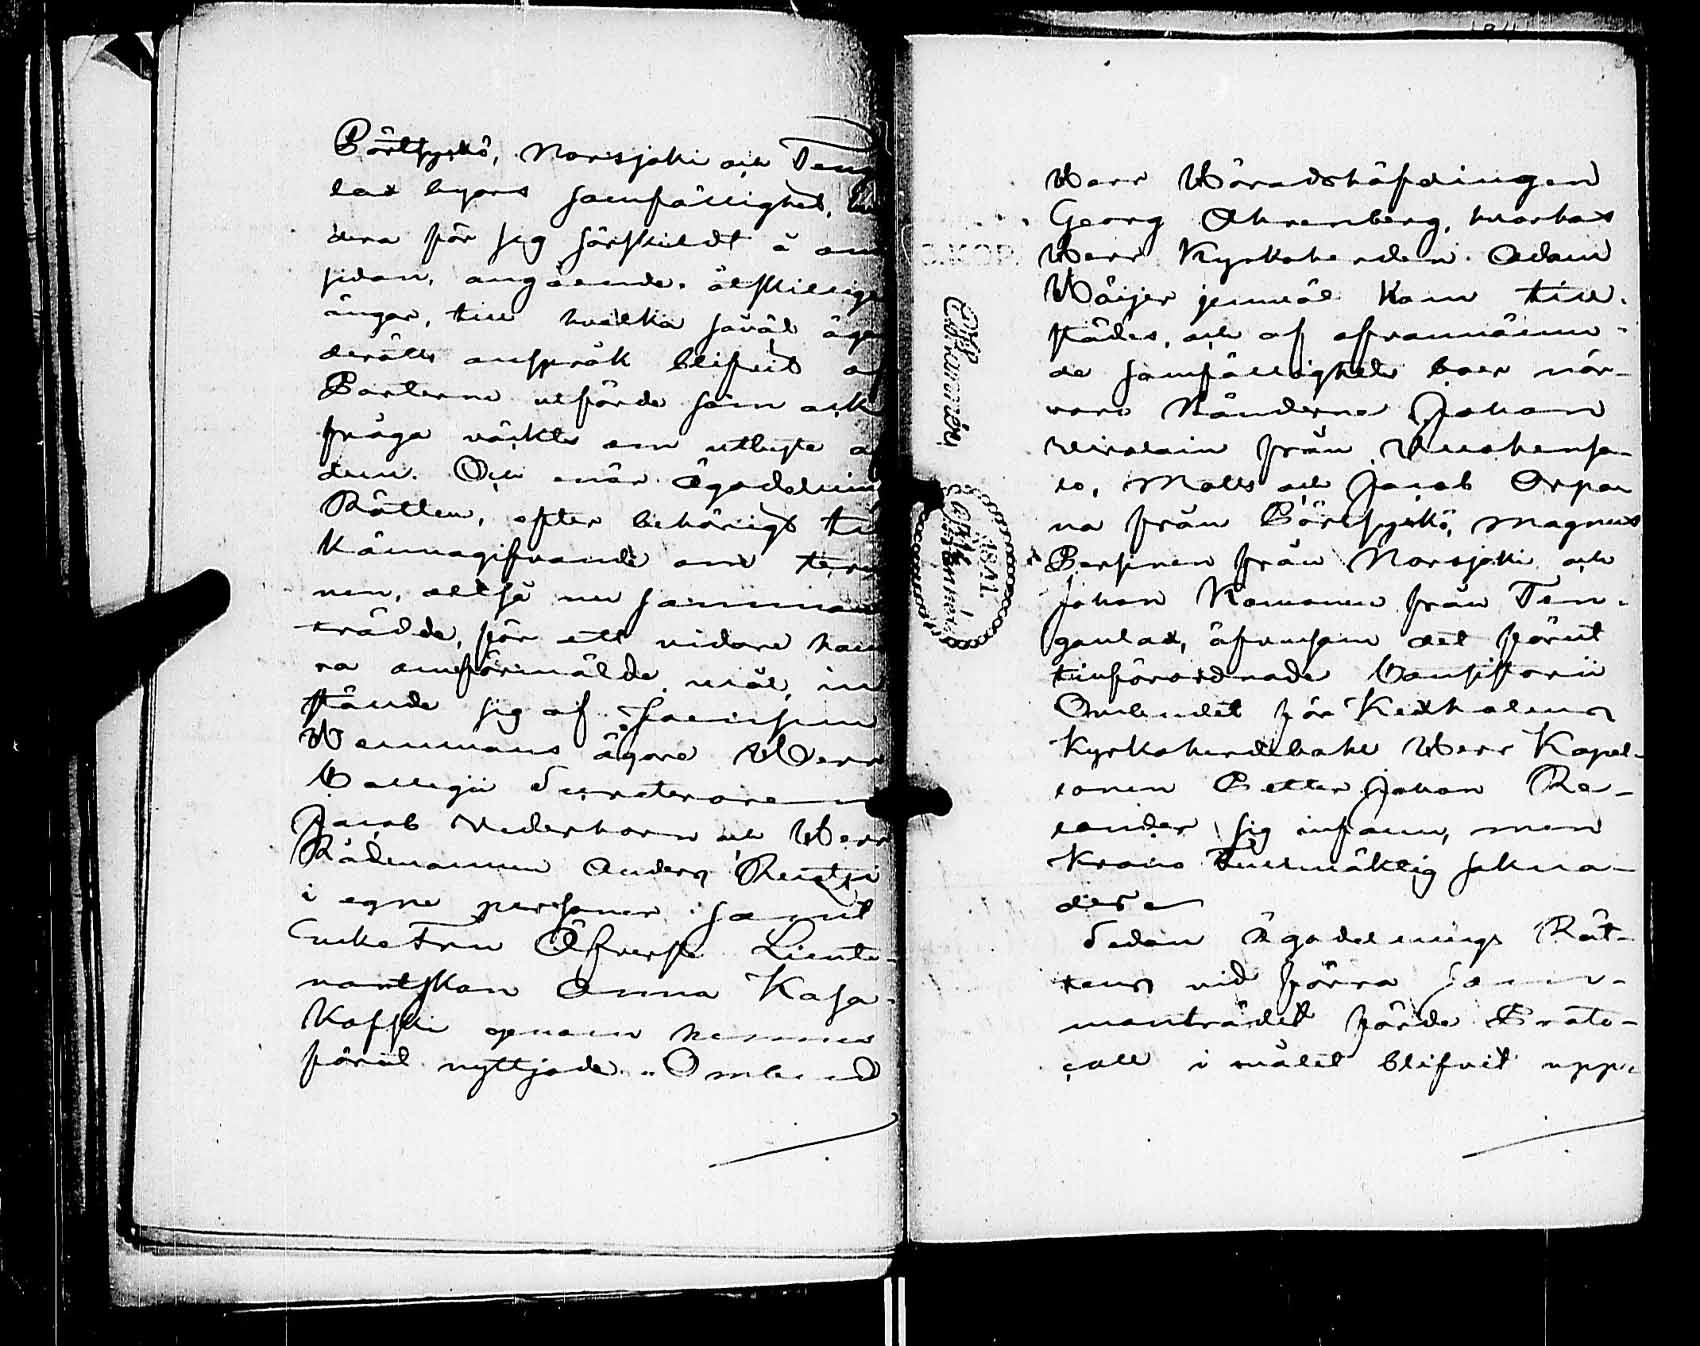 Pörtsyskö, Norsjoki och Ten
lax byars samfällighet, 
dera för sig särskildt å an
sidan, angående åtskillige
ängar, till hvilka såväl äga
derätts anspråk blifvit af
Parterne utförde som ock
fråga väckts om utbyte af
dem. Och när Ägodelning
Rätten, efter behörigt til
kännagifvande om term
nen, altså nu samman
trädde, för att vidare han
ra omförmälde mål, in
stände sig af 
Hemmans ägare Herr
Collegii Secreteraren
Jacob Wederhorn och Herr
Rådmannen Anders 
i egne personer samt
Enke Fru Öfverste Lieute-
nantskan Anna Kasa-
koffski genom hennes
förut nyttjade Ombud
Herr Häradshöfdingen
Georg Ahrenberg, hvarhos
Herr Kyrkoherden Adam
Häijer jemväl kom till-
städes, och af ofvannämn-
de samfälligheter boer når-
voro Bönderne Johan
Wirolain från 
lo, Matts och Jacob Orpa
na från Pörtsyskö, Magnus
Persinen från Norsjoki och
Johan Komonen från Ten-
gonlax, äfvensom det förut
tillförordnade Consistorii
Ombudet för Kexholms
Kyrkoherdebohl Herr Kapel-
lanen Petter Johan Re-
lander sig infann, men
Krono Fullmäktig sakna-
des.
Sedan Ägodelnings Rät-
tens vid förra sam-
manträdet förde Proto-
coll i målet blifvit upp-